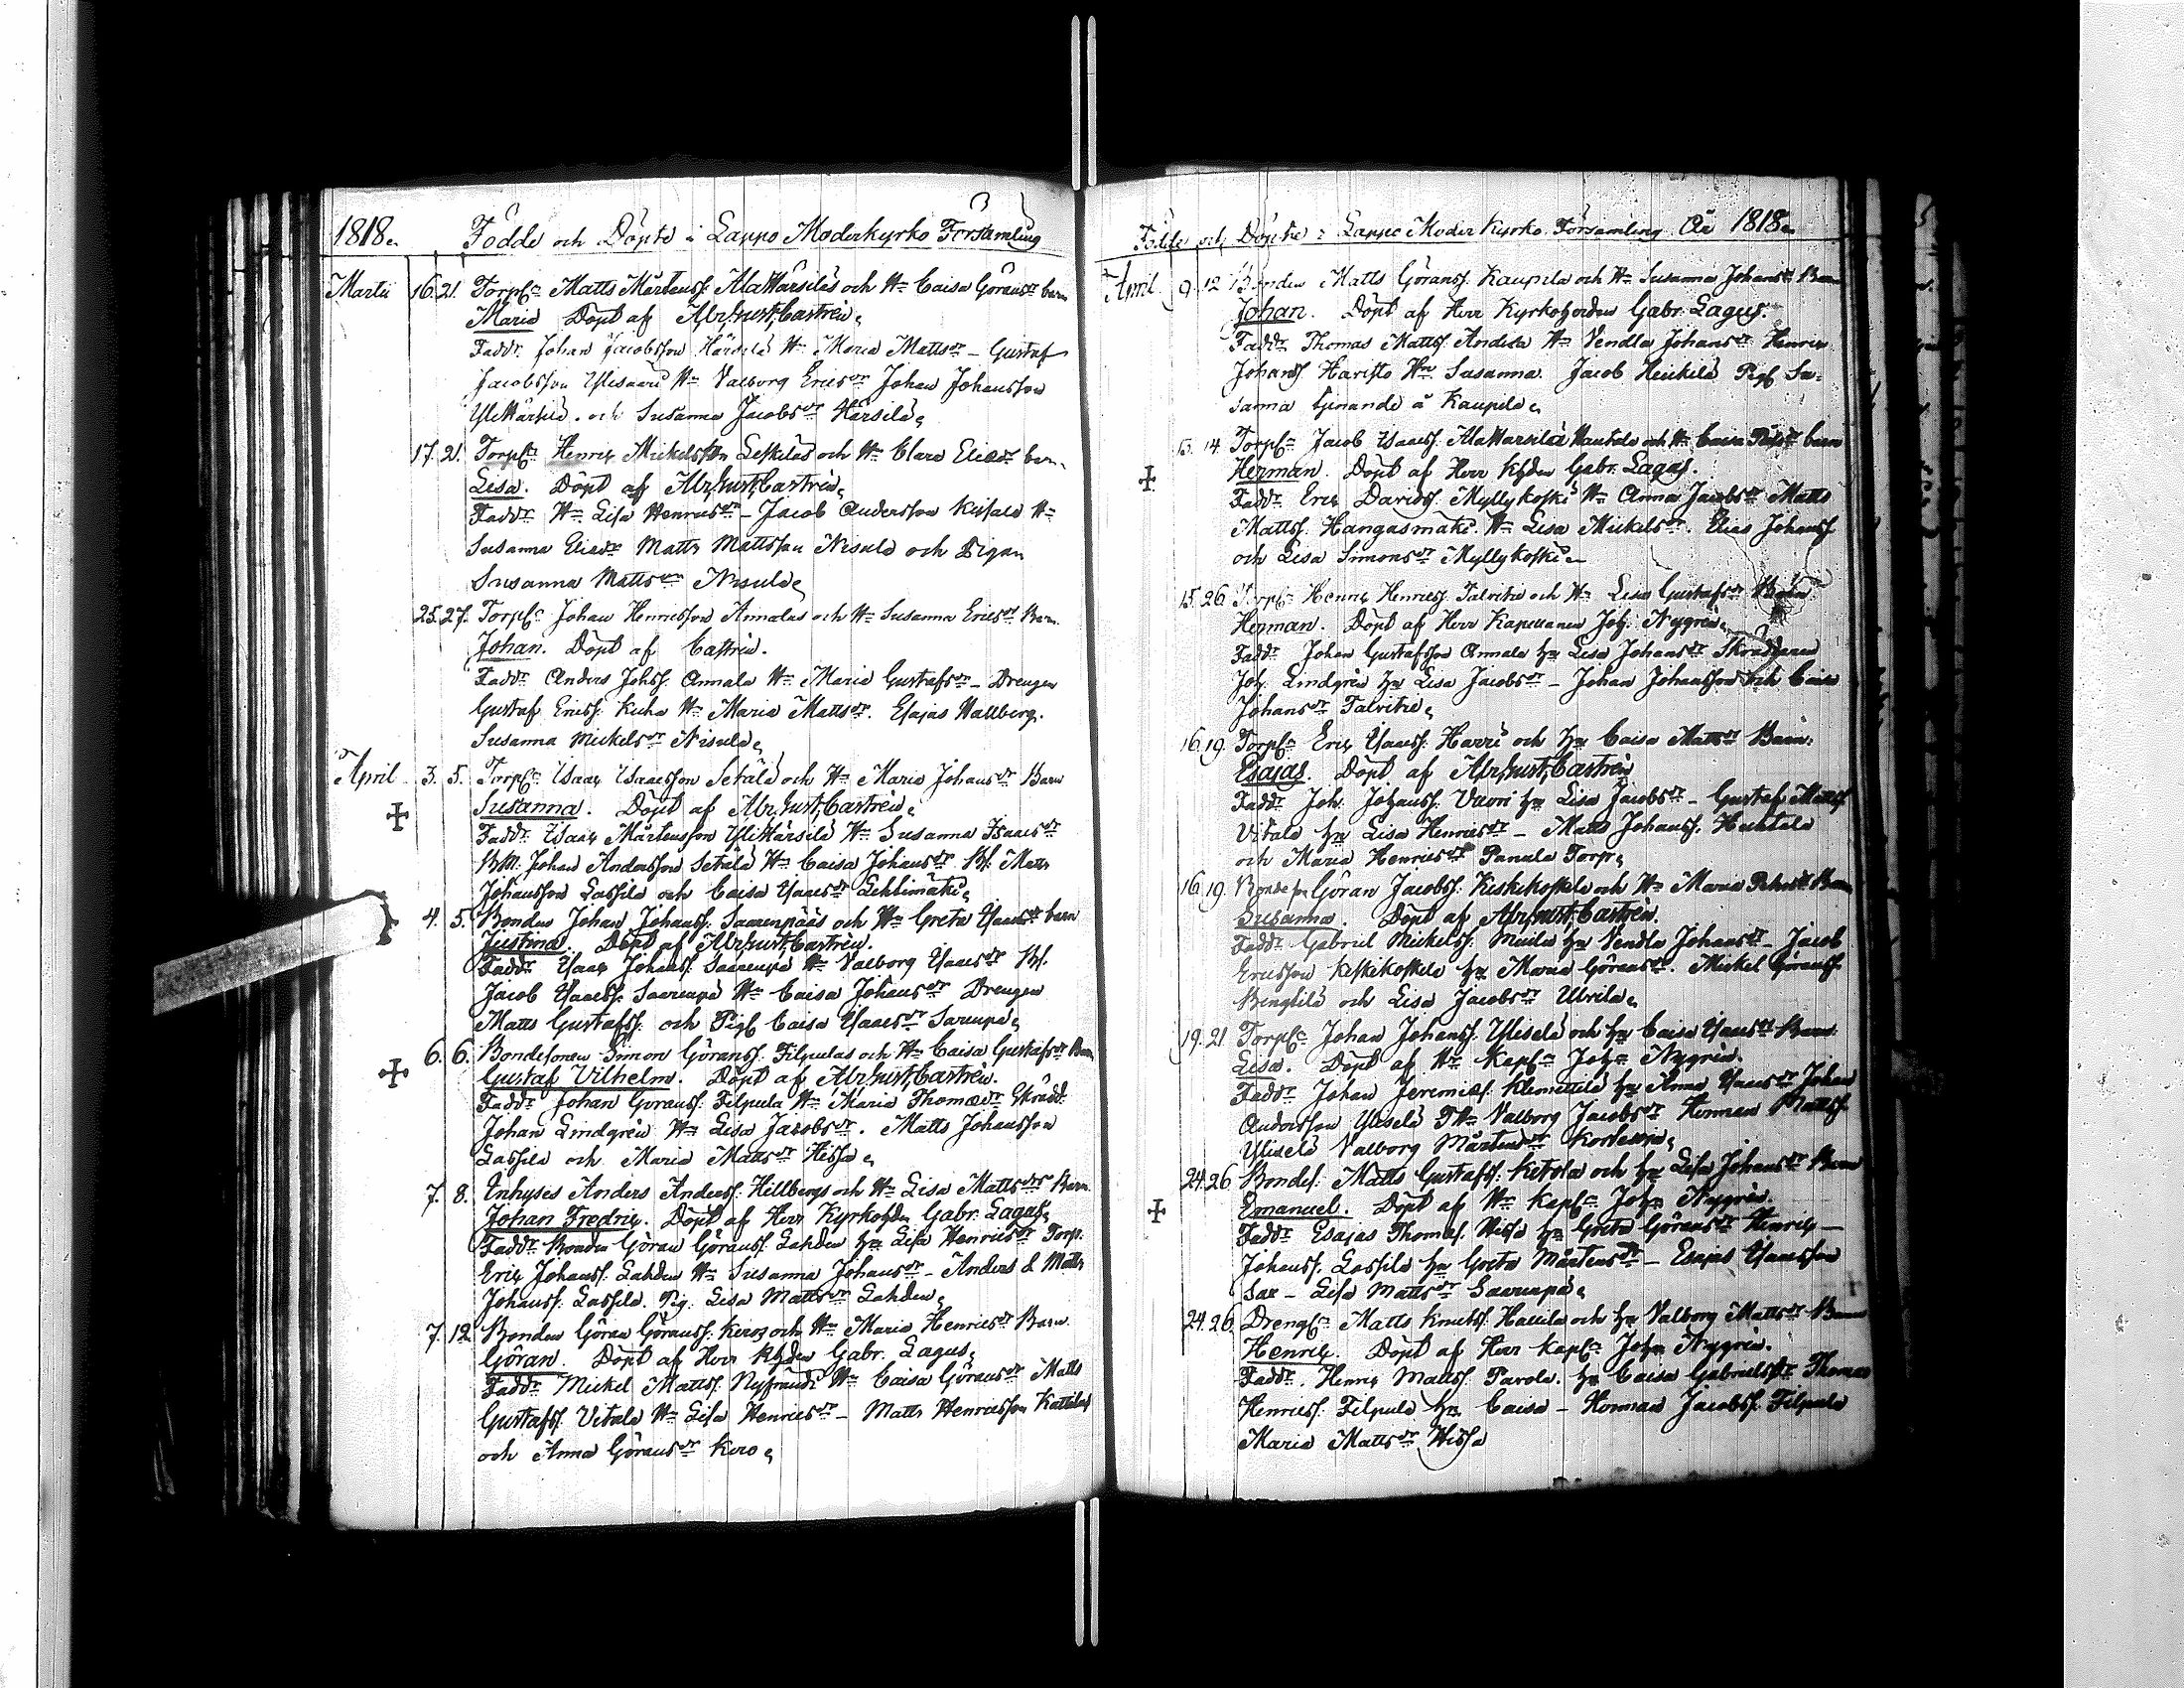 1818.
Födde och Döpte i Lappo Moderkyrko Församling
Martii 16. 21. Torp. Matts Mårtenss. AlaHärsilä och H. Caisa Göransdr barn
Maria Döpt af Abr. Gust. Castrén.
Faddr. Johan Jacobsson Härsilä H. Maria Mattsdr - Gustaf
Jacobsson H. Valborg Ericsdr Johan Johansson
YliHärsilä och Susanna Jacobsdr Härsilä.
17. 21. Torp. Henric Mickelsson Leskelas och H. Clara Eliædr barn
Lisa. Döpt af Abr. Gust. Castrén.
Faddr H. Lisa Henricsdr - Jacob Andersson H.
Susanna Eliædr Matts Mattsson Nisula och Pigan
Susanna Mattsdr Nisula.
25. 27. Torp. Johan Henricsson Annalas och H. Susanna Ericsdr Barn
Johan. Döpt af Castrén.
Faddr Anders Johss. Annala H. Maria Gustafsdr - Drengen
Gustaf Ericss. Kuha H. Maria Mattsdr. Esajas Hallberg.
Susanna Mickelsdr Nisula.
April 3. 5. Torp. Isaac Isaacsson Setälä och H. Maria Johansdr Barn
Susanna. Döpt af Abr. Gust. Castrén.
Faddr Isaac Mårtensson YliHärsilä H. Susanna Isaacsdr
Johan Andersson Setälä H. Caisa Johansdr. Matts
Johansson Lassila och Caisa Isaacsdr Lehtimäki.
4. 5. Bonden Johan Johanss. Saarenpääs och H. Greta Isaacsdr barn
Justina. Döpt af Abr. Gust. Castrén.
Faddr Isaac Johanss. Saarenpä H. Valborg Isaacsdr
Jacob Isaacss. Saarenpä H. Caisa Johansdr Drengen
Matts Gustafss. och Pig. Caisa Isaacsdr Sarenpä.
6. 6. Bondesonen Simon Göranss. Filpulas och H. Caisa Gustafsdr Barn
Gustaf Vilhelm. Döpt af Abr. Gust. Castrén.
Faddr Johan Göranss. Filpula H. Maria Thomædr Skrädd.
Johan Lindgrén H. Lisa Jacobsdr. Matts Johansson
Lassila och Maria Mattsdr Hissa.
7. 8. Inhyses Anders Anderss. Hellbergs och H. Lisa Mattsdr Barn
Johan Fredric. Döpt af Herr Kyrkohden Gabr. Lagus.
Faddr Bonden Göran Göranss. Lahden Hu Lisa Henricsdr Torp.
Eric Johanss. Lahden H. Susanna Johansdr - Anders & Matts
Johanss. Lassila. Pig. Lisa Mattsdr Lahden.
7. 12. Bonden Göran Göranss. Keros och H. Maria Henricsdr Barn
Göran. Döpt af Herr Khden Gabr. Lagus.
Faddr Mickel Mattss. H. Caisa Göransdr Matts
Gustafss. Vitala H. Lisa Henricsdr - Matts Henricsson Kattilas
och Anna Göransdr Kero.
Födde och Döpte i Lappo Moder Kyrko Församling År 1818.
April 9. 12 Bonden Matts Göranss. Kaupila och H. Susanna Johansdr Barn
Johan. Döpt af Herr Kyrkoherden Gabr. Lagus.
Faddr Thomas Mattss. Andila H. Vendla Johansdr Henric
Johanss. Haristo Hu. Susanna. Jacob Heickilä Pig. Su-
sanna tjenande å Kaupila.
13. 14 Torp. Jacob Isaacss. AlaHärsilä och H. Caisa barn
Herman. Döpt af Herr Khden Gabr. Lagus.
Faddr Eric Davidss. Myllykoski H. Anna Jacobsdr Matts
Mattss. Hangasmäki. H. Lisa Mickelsdr. Elias Johanss.
och Lisa Simonsdr Myllykoski.
15. 26 Torp. Henric Henricss. Talvitie och H. Lisa Gustafsdr Barn
Herman. Döpt af Herr Kapellanen Joh. Nygrén.
Faddr Johan Gustafsson Annala Hu Lisa Johansdr Skräddaren
Joh. Lindgrén Hu Lisa Jacobsdr - Johan Johansson och Caisa
Johansdr Talvitie.
16. 19. Torp. Eric Isaacss. Harri och Hu Caisa Mattsdr Barn:
Esajas. Döpt af Abr. Gust. Castrén
Faddr Joh. Johanss. Vuori Hu Lisa Jacobsdr - Gustaf Mattss.
Vitala Hu Lisa Henricsdr - Matts Johanss. Huhtala
och Maria Henricsdr Panula Torp.
16. 19. Göran Jacobss. Keskikoskela och H. Maria Barn
Susanna. Döpt af Abr. Gust. Castrén.
Faddr Gabriel Mickelss. Hu Vendla Johansdr - Jacob
Ericsson Keskikoskela Hu Maria Göransdr. Mickel Göranss.
Bengtilä och Lisa Jacobsdr Ulvila.
19. 21 Torp. Johan Johanss. Yliselä och Hu Caisa Isaacsdr Barn
Lisa. Döpt af H. Kapl. Joh. Nygrén.
Faddr Johan Jeremiæs. Klemettilä Hu Anna Isaacsdr Johan
Andersson Yliselä Valborg Jacobsdr Herman Mattss.
Yliselä Valborg Mårtensdr
24. 26 Bondes. Matts Gustafss. Ketola och Hu Lisa Johansdr Barn
Emanuel. Döpt af H. Kapl. Joh. Nygrén.
Faddr Esajas Thomæs. Hissa Hu Greta Göransdr Henric -
Johanss. Lassila Hu Greta Mårtensdr - Esajas Isaacsson
Sax - Lisa Mattsdr Saarenpä.
24. 26 Dreng. Matts Knutss. Hallila och Hu Valborg Mattsdr Barn
Henric. Döpt af Herr Kapl. Joh. Nygrén.
Faddr. Henric Mattss. Pavola. Hu Caisa Gabrielsdr Thomas
Henricss. Filpula Hu Caisa - Herman Jacobss. Filpula
Maria Mattsdr Hissa